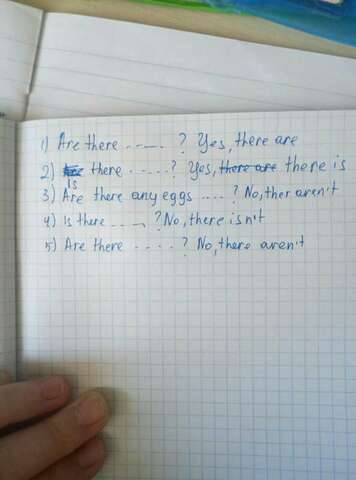 1) Are there ..... ? Yes, there are
2) Is there ..... ? Yes, there are there is
3) Are there any eggs ....? No, ther aren't
4) Is there ....? No, there isn't
5) Are there ....? No, there aren't